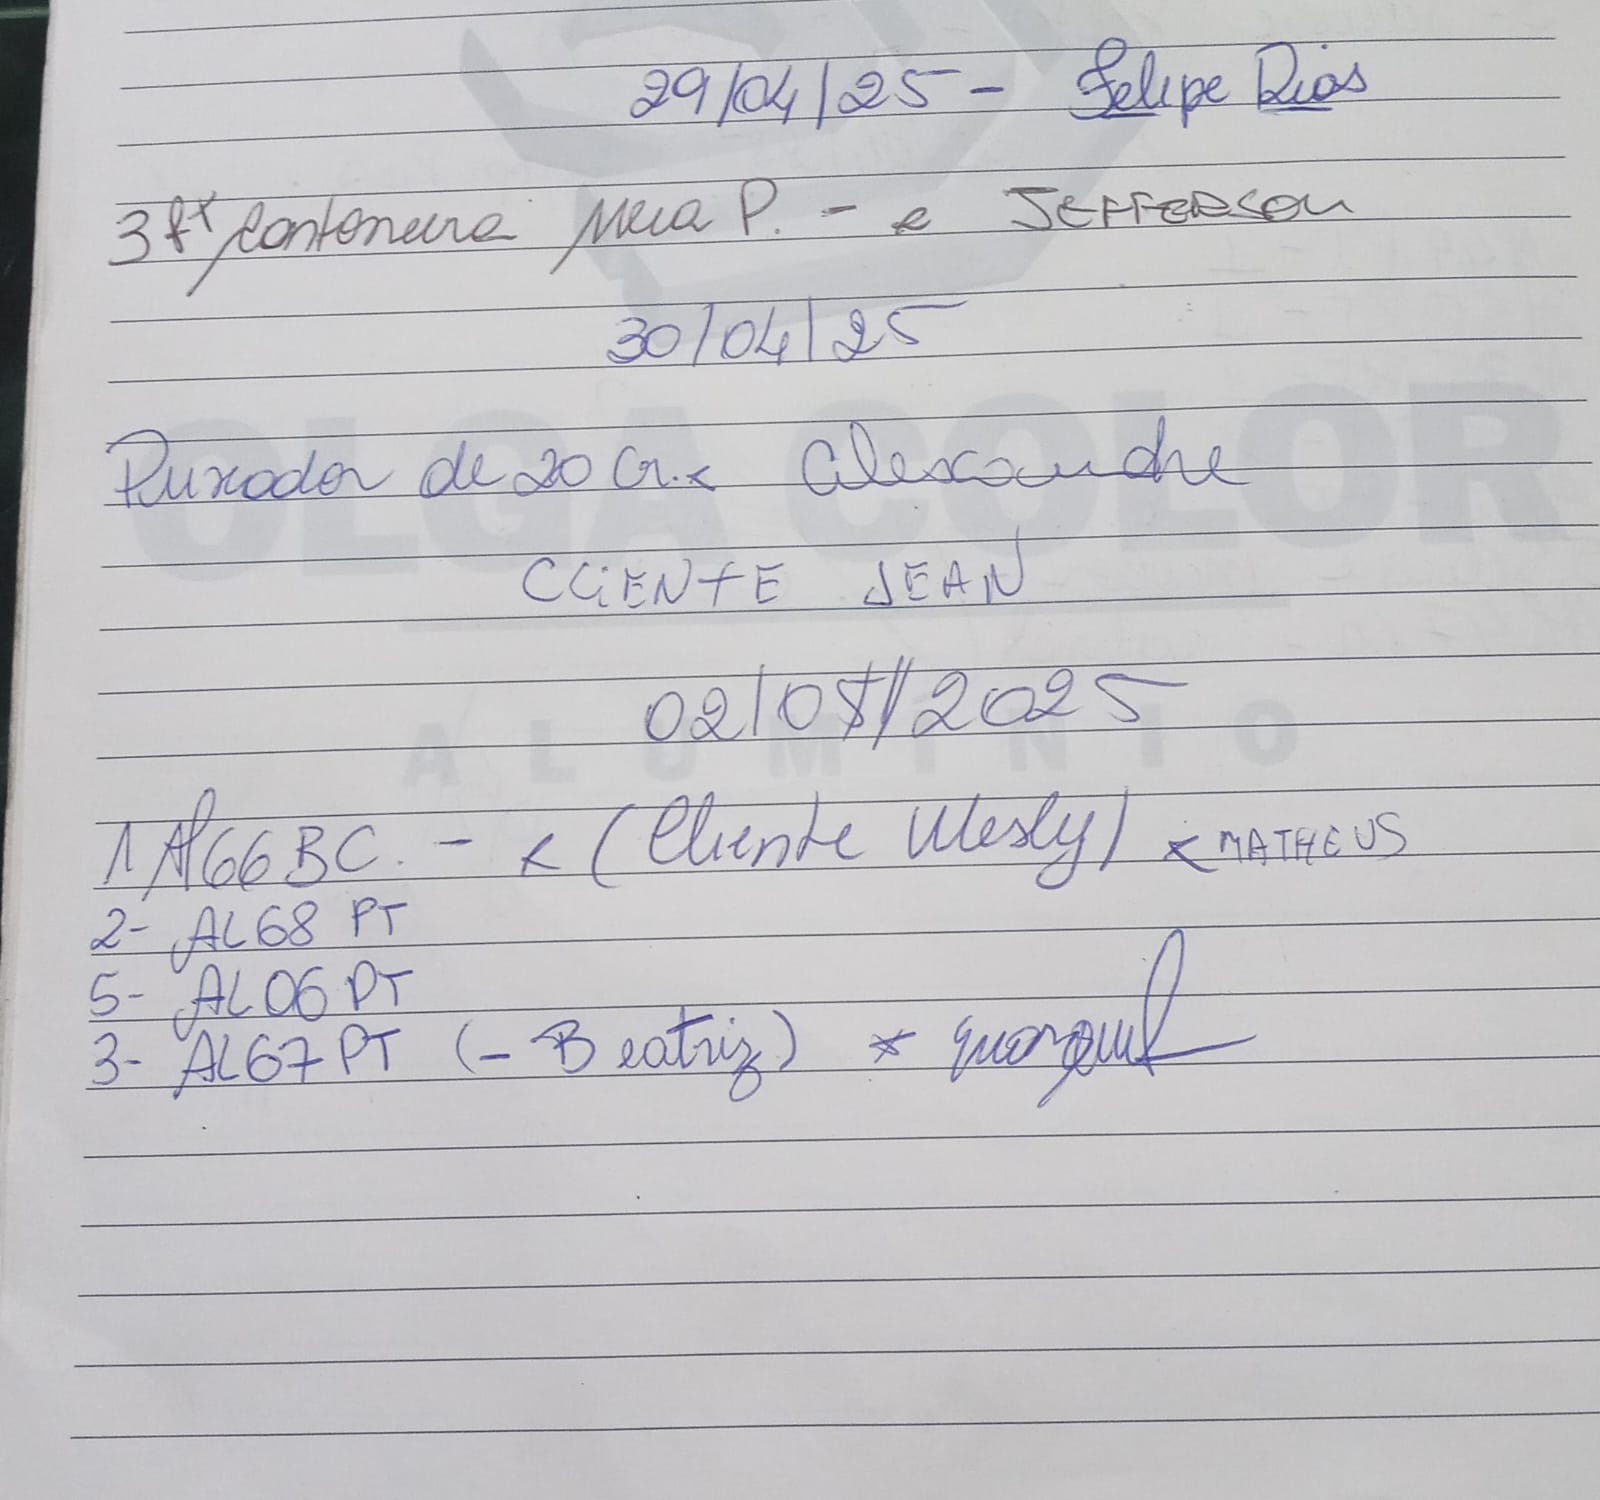 29/04/25 - Felipe Dias
3 fx Cantoneira Meia P. - x JEFFERSON
30/04/25
OLGA COLOR
Puxador de 20 Cm. x Alexandre
CLiENTE JEAN
02/05//2025
ALUMÍNIO
1 Al66 BC. - x (Cliente Wesly) x MATHEUS
2- AL68 PT
5- AL06 PT
3- AL67 PT (- Beatriz) x